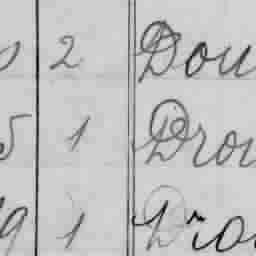 2 Dou
5 1 Drou
9 1 Dro